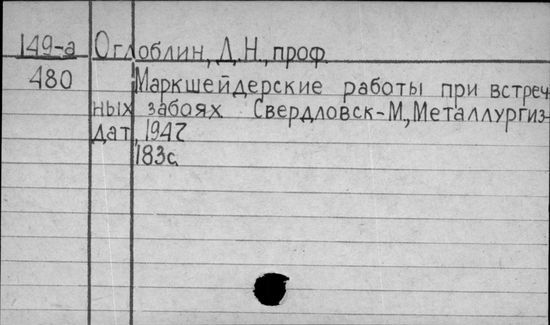 149-а Оглоблин, Д.Н., проф.
480 Маркшейдерские работы при встреч
ных забоях Свердловск-М., Металлургиз-
дат, 1947
183с.